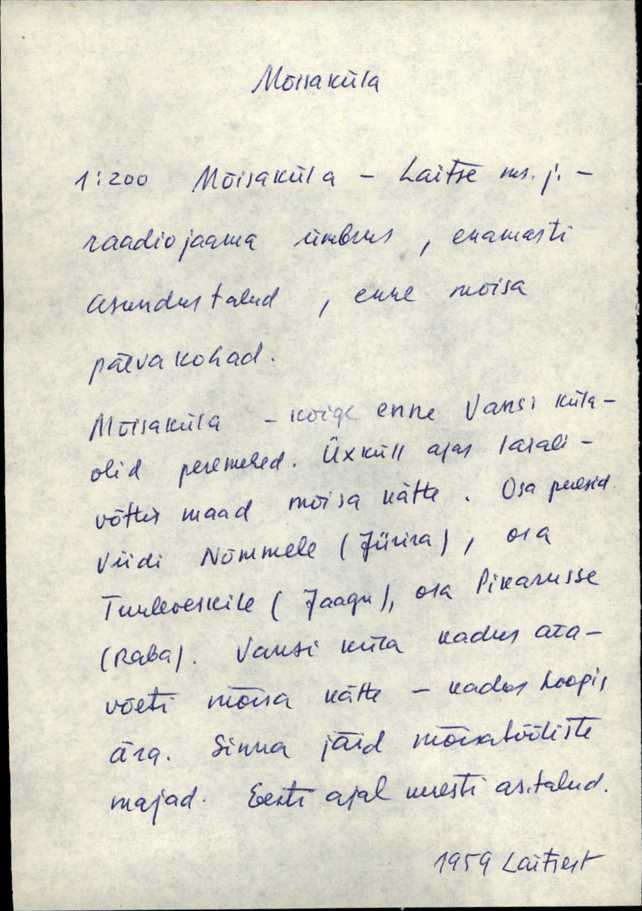 Mõisaküla
1:200 Mõisaküla - Laitse ms. j. -
raadiojaama ümbrus, enamasti
asundustalud, enne mõisa
päevakohad.
Mõisaküla - kõige enne Vansi küla -
olid peremehed. Üxküll ajas laiali -
võttis maad mõisa kätte. Osa peresid
viidi Nõmmele (Jürira), osa
Tuuleveskile (Jaagu), osa Pikanusse
(Raba). Vansi küla kadus ära -
võeti mõisa kätte - kadus hoopis
ära. Sinna jäid mõisatööliste
majad. Eesti ajal uuesti as.talud.
1959 Laitsest